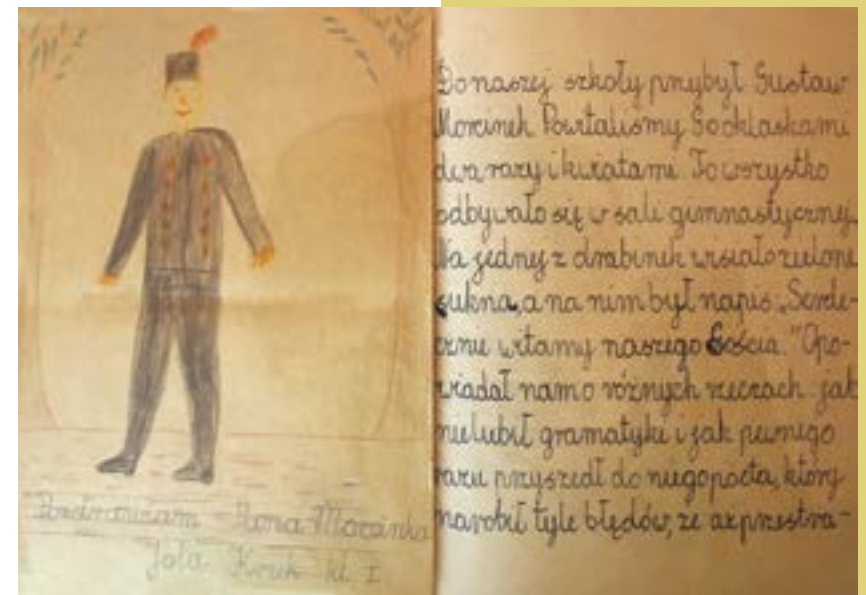 Pozdrawiam Pana Morcinka
Jola Kruk kl. I
Do naszej szkoły przybył Gustaw
Morcinek. Powitaliśmy Go oklaskami
dwa razy i kwiatami. To wszystko
odbywało się w sali gimnastycznej.
Na jednej z drabinek wisiało zielone
sukna, a na nim był napis: „Serde-
cznie witamy naszego Gościa." Opo-
wiadał nam o różnych rzeczach jak
nie lubił gramatyki i jak pewnego
razu przyszedł do niego poeta, który
narobił tyle błędów, że aż przestra-